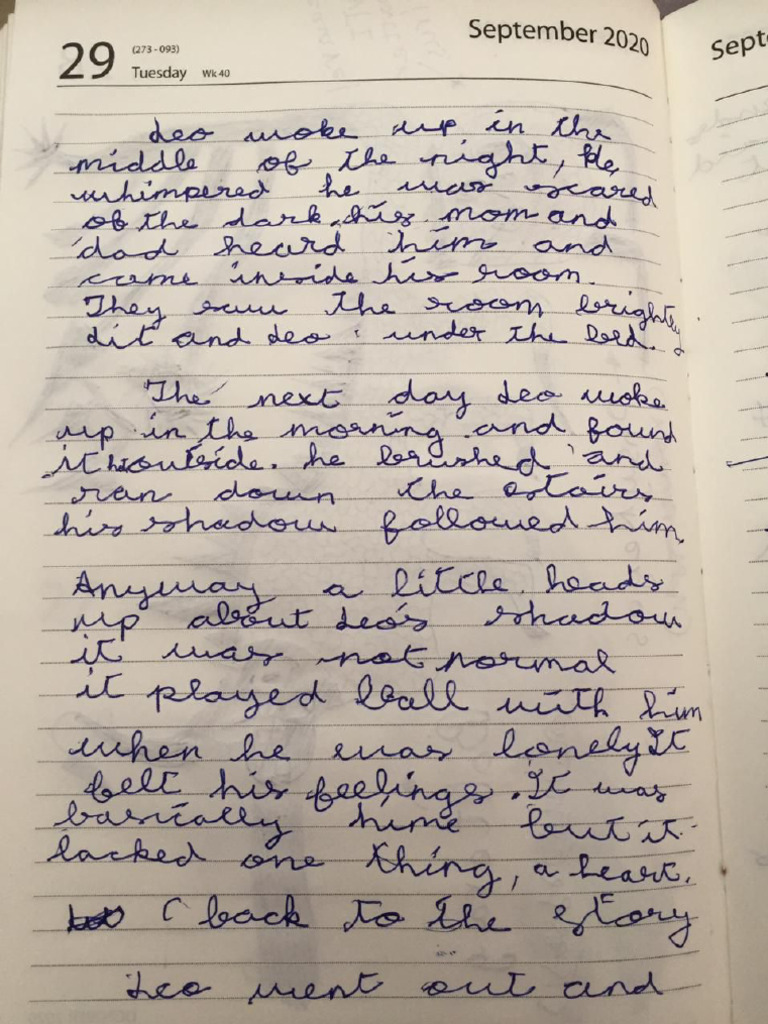 September 2020
29 (273-093)
Tuesday Wk 40
Sept
Leo woke up in the
middle of the night, He,
whimpered he was scared
of the dark. his mom and
dad heard him and
came inside his room.
They saw the room brightly
lit and Leo under the bed.
The next day Leo woke
up in the morning and found
it outside. he brushed and
ran down the stairs
his shadow followed him.
Anyway a little heads
up about Leo's shadow
it was not normal
it played ball with him
when he was lonely It
felt his feelings. It was
basically hime but it
lacked one thing, a heart.
( back to the story
Leo went out and